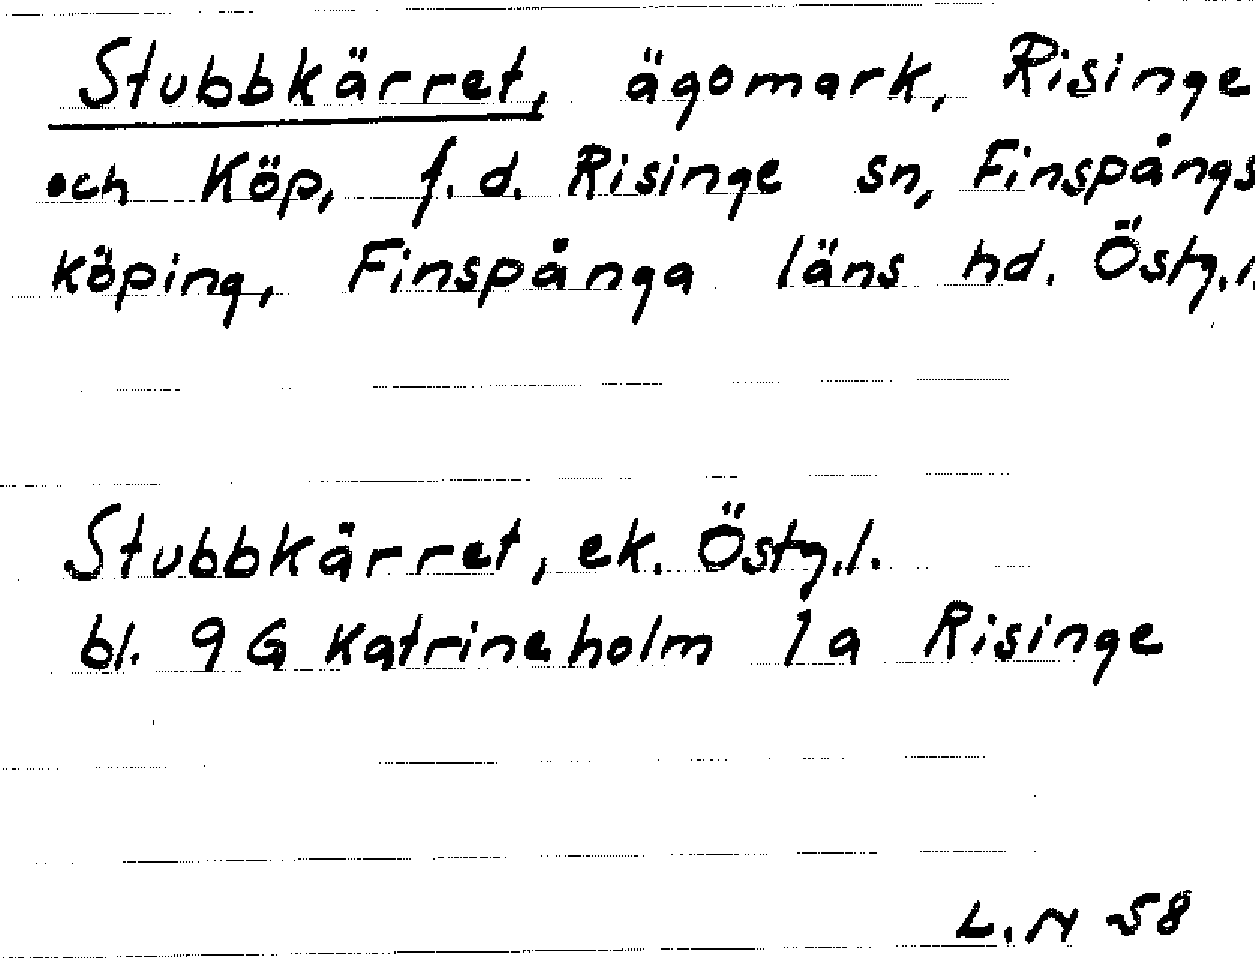 Stubbkärret, ägomark, Risinge
och Köp, f.d. Risinge sn, Finspångs
köping, Finspånga läns hd. Östg.l.
Stubbkärret, ek. Östg.l.
bl. 9 G Katrineholm 1 a Risinge
L. N 58